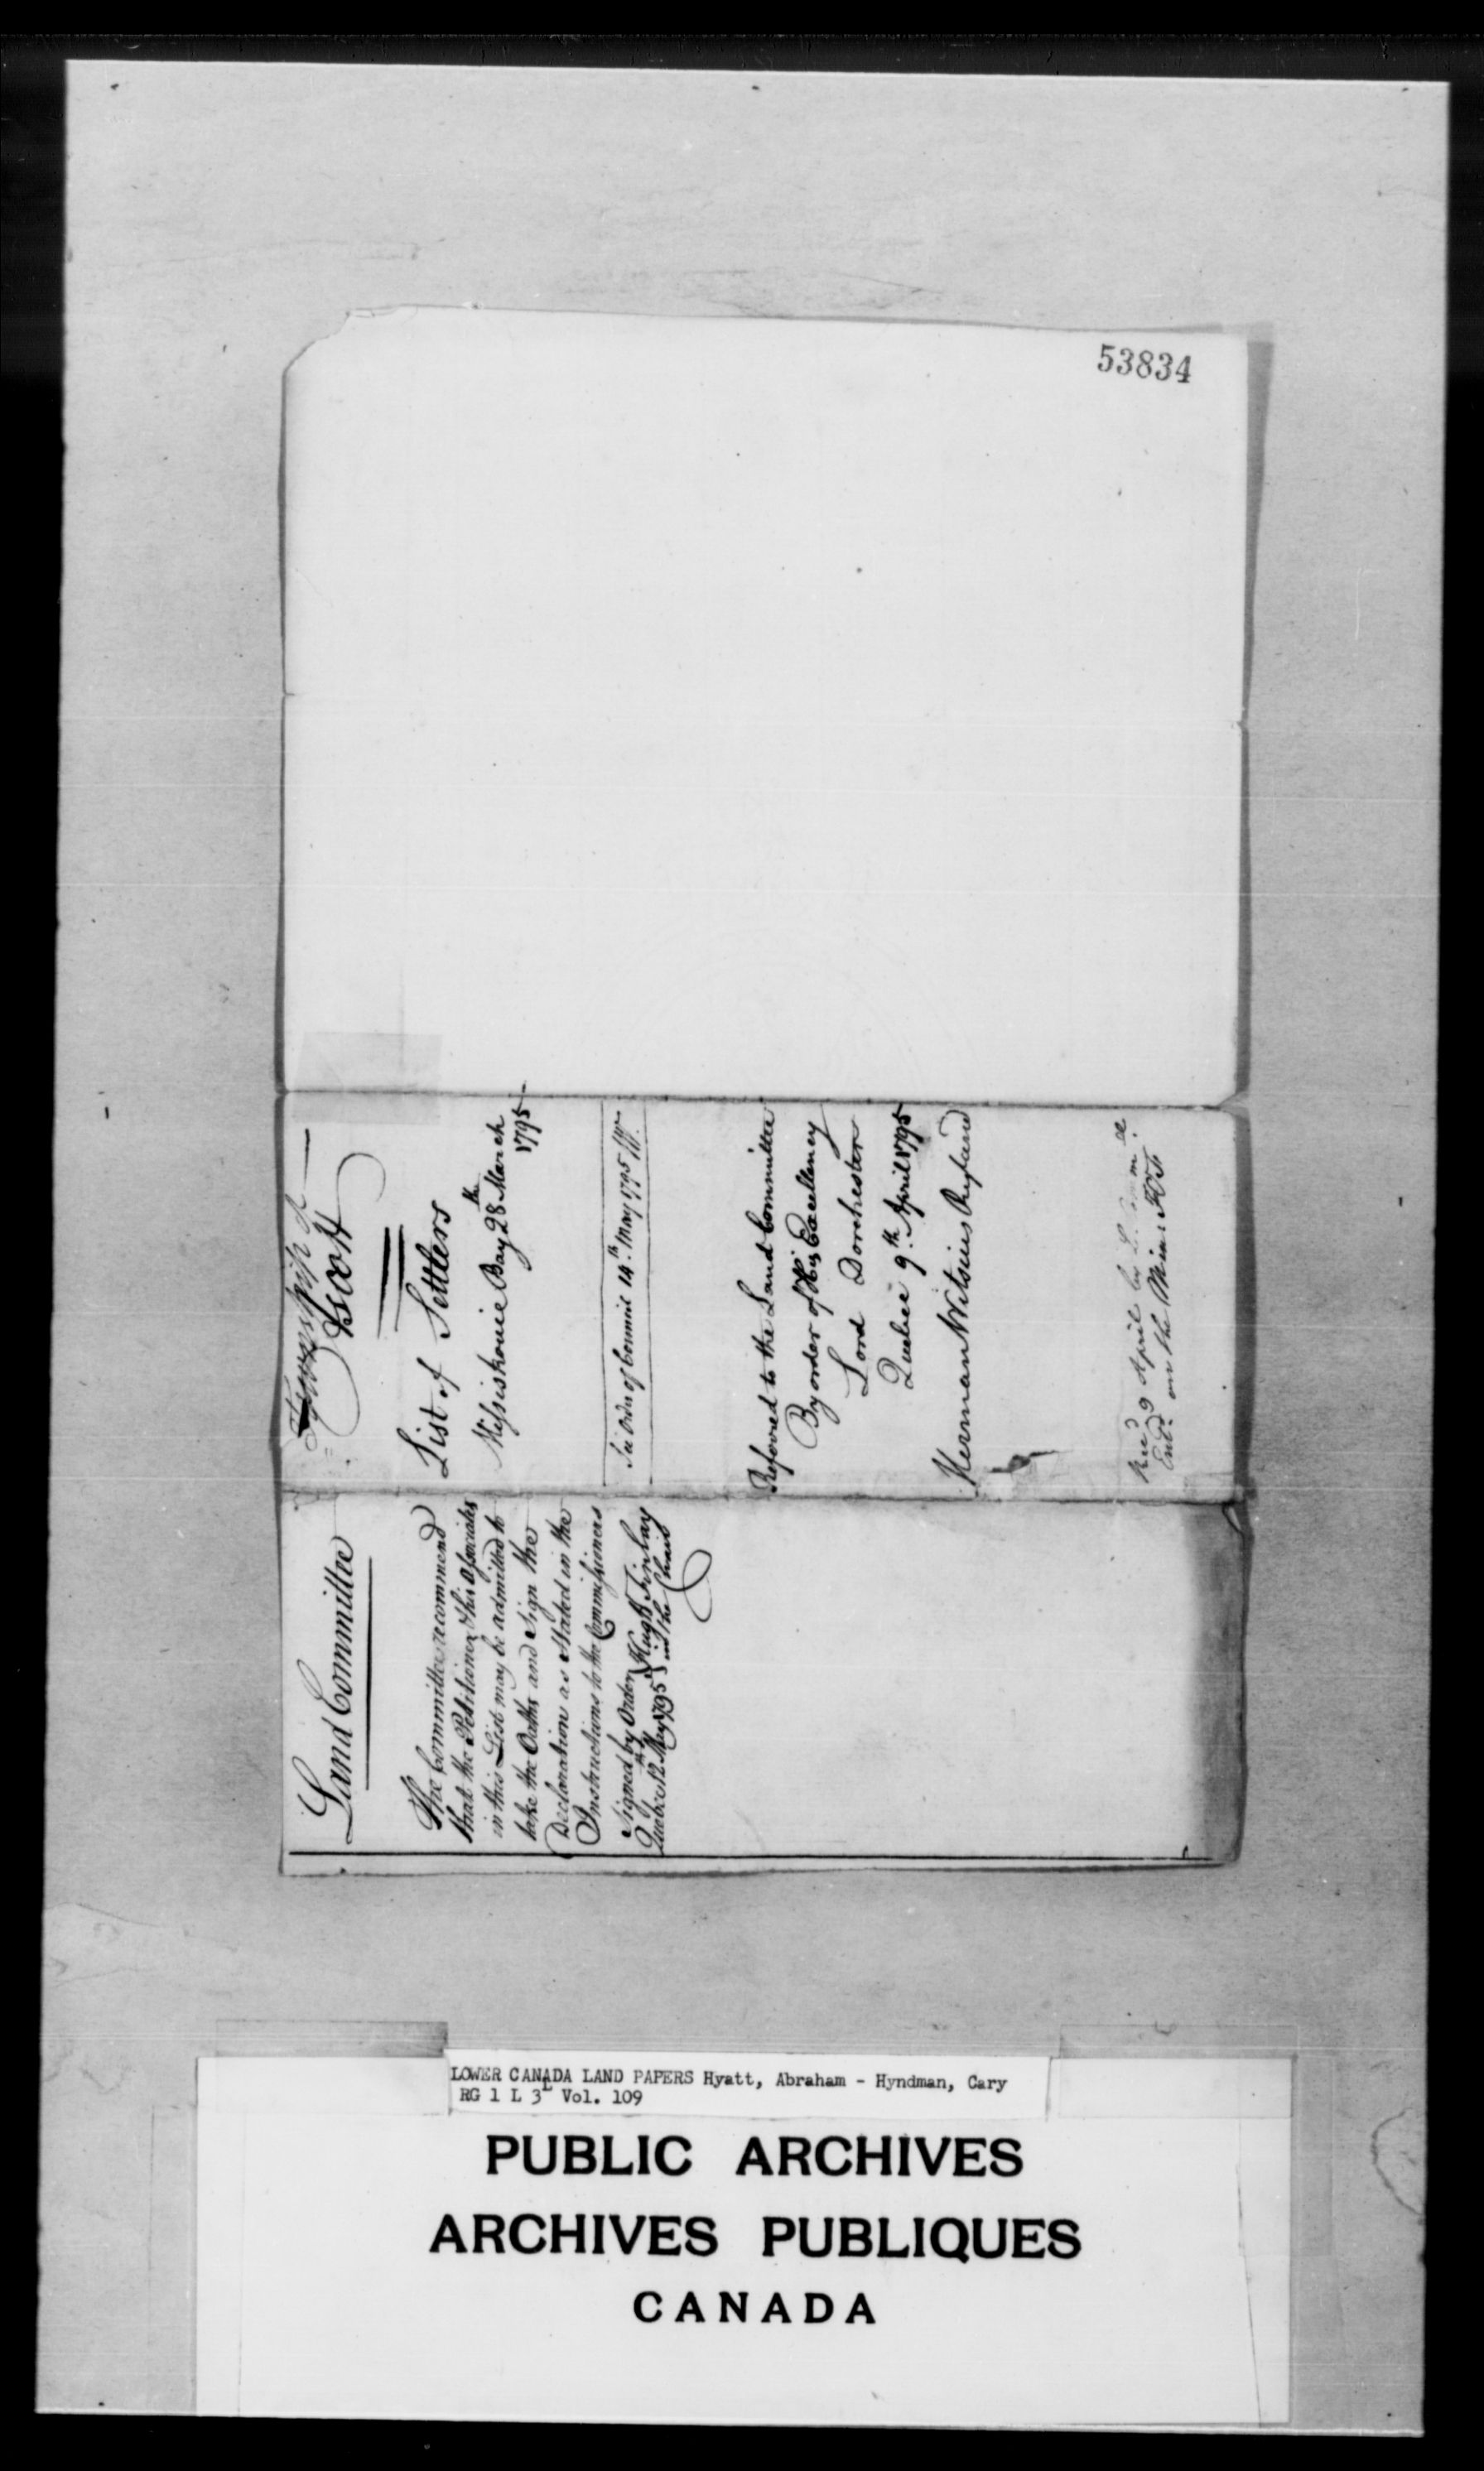 53834
Township of
Ascott
List of Settlers
Missiskouie Bay 28th March
1795
See Order of Council 14th May 1795
Referred to the Land Committee
By order of His Excellency
Lord Dorchester
Quebec 9th April 1795
Herman Witsius Ryland
Recd 9 April
Entd on the Min:
Land Committee
The Committee recommend
that the Petitioner & his Associates
in this List may be admitted to
take the Oaths and Sign the
Declaration as Stated in the
Instructions to the Commissioners
Signed by Order } Hugh Finlay
Quebec 12th May 1795 } in the Chair
LOWER CANADA LAND PAPERS Hyatt, Abraham - Hyndman, Cary
RG 1 L 3L Vol. 109
PUBLIC ARCHIVES
ARCHIVES PUBLIQUES
CANADA